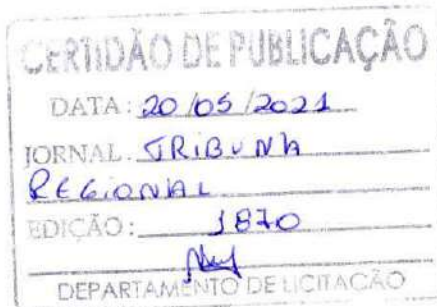 CERTIDÃO DE PUBLICAÇÃO
DATA: 20/05/2021
JORNAL: TRIBUNA
REGIONAL
EDIÇÃO: 1870
DEPARTAMENTO DE LICITAÇÃO